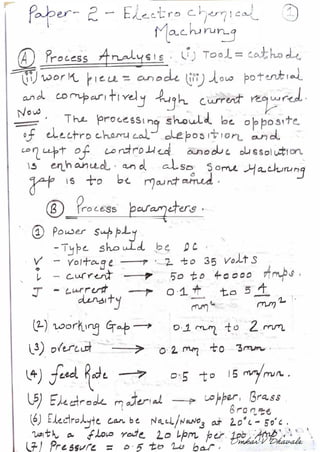 Paper- 2 - Electro Chemical ①
Machining
Ⓐ Process Analysis. (i) Tool = cathode
(ii) work piece = anode (iii) low potential
and comparitively high current required.
Now
. The processing should be opposite
of electro chemical deposition and
concept of controlled anodic dissolution
is enhanced. and also some Machining
gap is to be maintained.
Ⓑ Process parameters.
① Power supply
- Type should be DC.
V - voltage → 2 to 35 volts
i - current → 50 to 40000 Amps.
J - current density → 0.1 A/mm² to 5 A/mm²
(2) working Gap → 0.1 mm to 2 mm
(3) overcut → 0.2 mm to 3mm.
(4) feed Rate → 0.5 to 15 mm/min.
(5) Electrode material → copper, Brass
Bronze
(6) Electrolyte can be NaCl/NaNO3 at 20°C - 50°C.
with a flow rate 20 lpm per 100 Amp
(7) Pressure = 0.5 to 20 bar.
Omkar V Bhavale